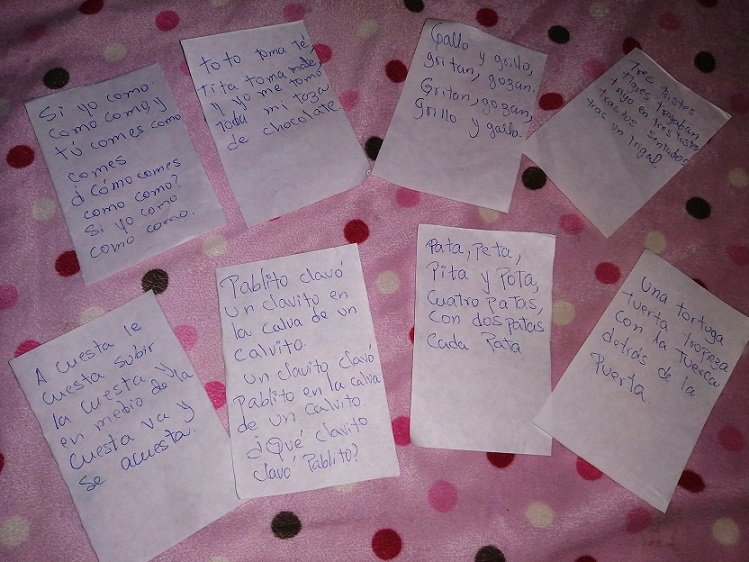 Si yo como
como como, y
tú comes como
comes
¿Cómo comes
como como?
Si yo como
como como.
toto toma té,
Tita toma mate
Y yo me tomo
toda mi taza
de chocolate.
Gallo y grillo,
gritan, gozan.
Gritan, gozan,
Grillo y gallo.
Tres tristes
tigres tragaban
trigo en tres tristes
trastos, sentados
tras un trigal.
A cuesta le
cuesta subir
la cuesta y
en medio de la
cuesta va y
se acuesta.
Pablito clavó
un clavito en
la calva de un
calvito.
un clavito clavó
Pablito en la calva
de un calvito
¿Qué clavito
clavó Pablito?
Pata, Peta,
Pita y Pota,
cuatro patas,
con dos patas
cada Pata
Una tortuga
tuerta tropieza
con la tuerca
detrás de la
puerta.